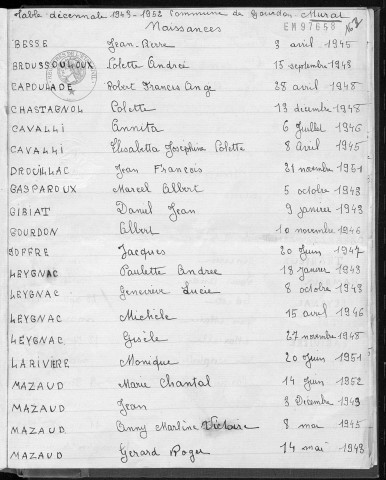 Table décennale 1943-1952 Commune de Gourdon-Murat
Naissances EM97658
BESSE Jean-Pierre 3 avril 1945
BROUSSOULOUX Colette Andrée 15 septembre 1943
CAPOULADE Robert Frances Ange 28 avril 1948
CHASTAGNOL Colette 13 décembre 1948
CAVALLI Annita 6 Juillet 1946
CAVALLI Elisabetta Joséphine Colette 8 Avril 1945
DROUILLAC Jean François 21 novembre 1951
GASPAROUX Marcel Albert 5 octobre 1943
GIBIAT Daniel Jean 9 janvier 1943
GOURDON Albert 10 novembre 1946
GOFFRE Jacques 20 Juin 1947
LEYGNAC Paulette Andrée 18 janvier 1943
LEYGNAC Geneviève Lucie 8 octobre 1948
LEYGNAC Michèle 15 avril 1946
LEYGNAC Gisèle 27 novembre 1948
LARIVIERE Monique 20 Juin 1951
MAZAUD Marie Chantal 14 Juin 1952
MAZAUD Jean 3 Décembre 1943
MAZAUD Anny Martine Victoire 8 mai 1945
MAZAUD Gérard Roger 14 mai 1948